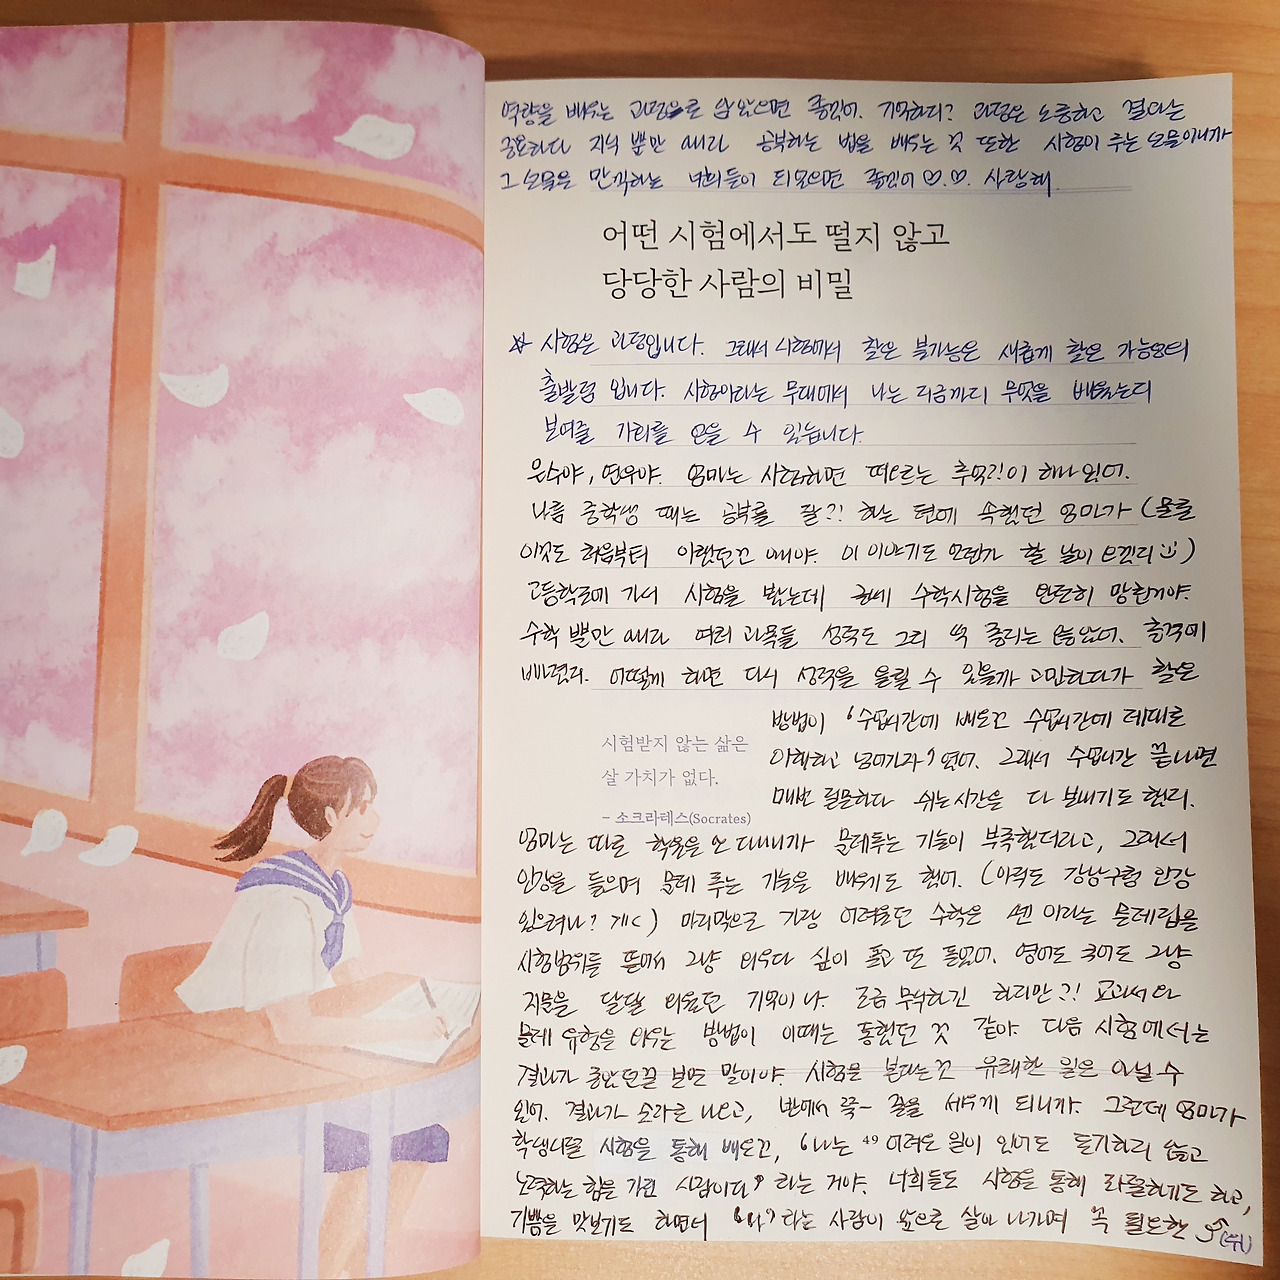 역량을 배우는 과정으로 삼았으면 좋겠어. 기억하지? 과정은 소중하고 결과는
중요하다 지식 뿐만 아니라 공부하는 법을 배우는 것 또한 시험이 주는 선물이니까
그 선물을 만끽하는 너희들이 되었으면 좋겠어♡.♡. 사랑해.
어떤 시험에서도 떨지 않고
당당한 사람의 비밀
☆ 시험은 과정입니다. 그래서 시험에서 찾은 불가능은 새롭게 찾은 가능성의
출발점 입니다. 시험이라는 무대에서 나는 지금까지 무엇을 배웠는지
보여줄 기회를 얻을 수 있습니다.
은수야, 연우야. 엄마는 시험하면 떠오르는 추억?!이 하나 있어.
나름 중학생 때는 공부를 잘?! 하는 편에 속했던 엄마가 (물론
이것도 처음부터 이랬던건 아니야. 이 이야기도 언젠가 할 날이 오겠지 ü)
고등학교에 가서 시험을 봤는데 글쎄 수학시험을 완전히 망친거야.
수학 뿐만 아니라 여러 과목들 성적도 그리 썩 좋지는 않았어. 충격에
빠졌지. 어떻게 하면 다시 성적을 올릴 수 있을까 고민하다가 찾은
방법이 '수업시간에 배운건 수업시간에 제대로
시험받지 않는 삶은
이해하고 넘어가자' 였어. 그래서 수업시간 끝나면
살 가치가 없다.
매번 질문하다 쉬는시간을 다 보내기도 했지.
– 소크라테스(Socrates)
엄마는 따로 학원을 안 다니니까 문제푸는 기술이 부족했더라고, 그래서
인강을 들으며 문제 푸는 기술을 배우기도 했어. (아직도 강남구청 인강
있으려나? ㅋㅋ) 마지막으로 가장 어려웠던 수학은 쎈 이라는 문제집을
시험범위를 뜯어서 그냥 외우다 싶이 풀고 또 풀었어. 영어도 국어도 그냥
지문을 달달 외웠던 기억이 나. 조금 무식하긴 하지만?! 교과서와
문제 유형을 외우는 방법이 이때는 통했던 것 같아. 다음 시험에서는
결과가 좋았던걸 보면 말이야. 시험을 본다는것 유쾌한 일은 아닐 수
있어. 결과가 숫자로 나오고, 반에서 쭉~ 줄을 세우게 되니까. 그런데 엄마가
학생시절 시험을 통해 배운건, '나는 어려운 일이 있어도 포기하지 않고
49
노력하는 힘을 가진 사람이다' 라는 거야. 너희들도 시험을 통해 좌절하기도 하고,
기쁨을 맛보기도 하면서 '나'라는 사람이 앞으로 살아 나가며 꼭 필요한